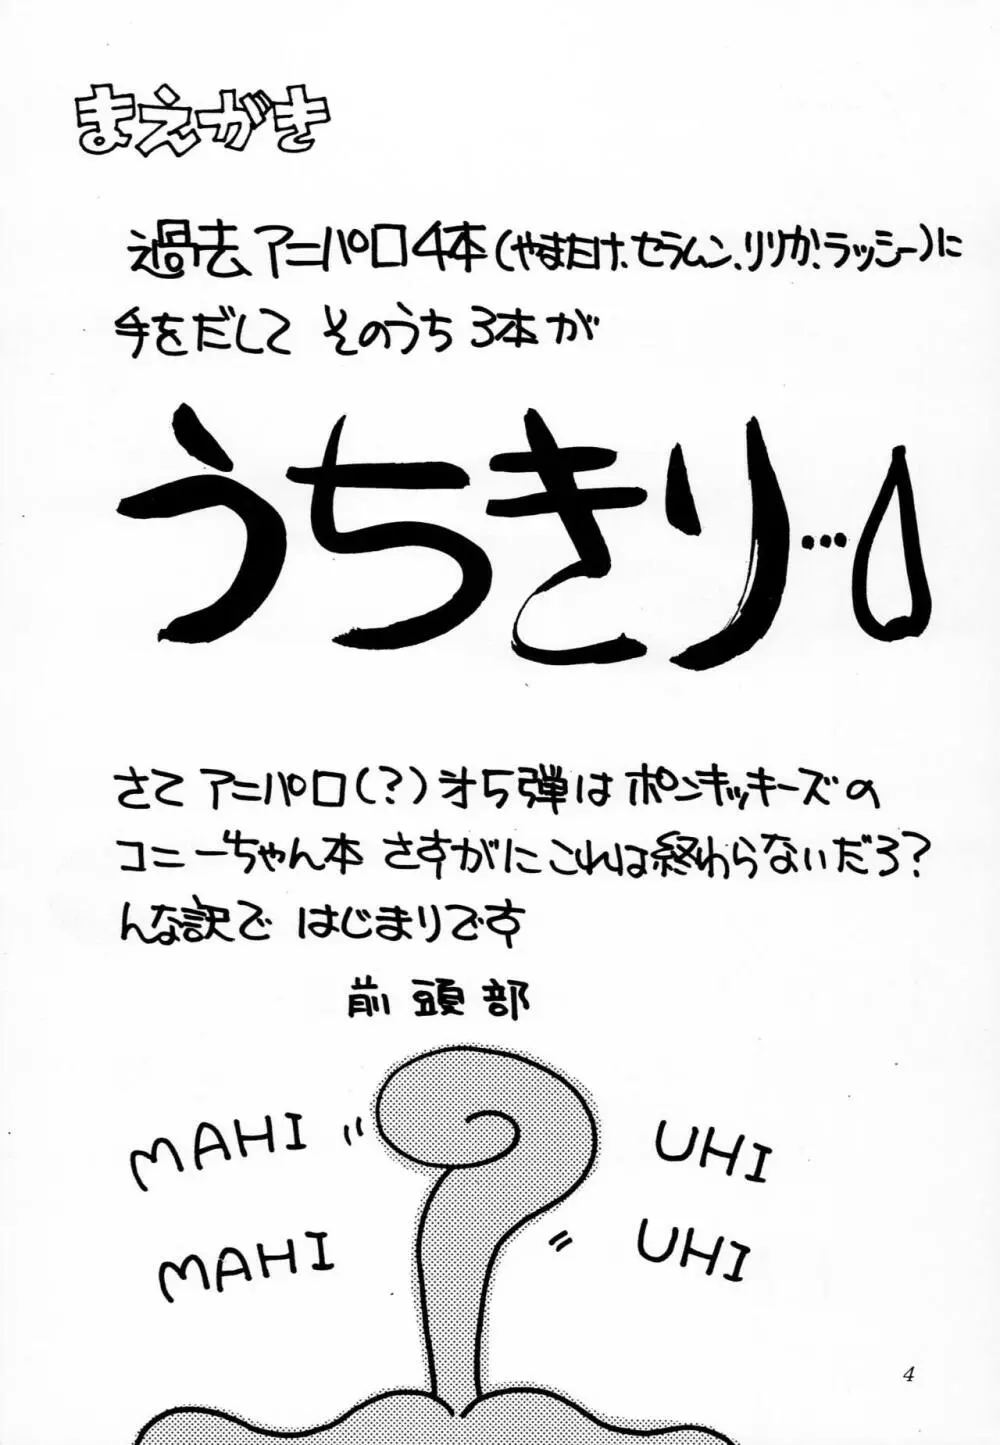 まえがき
過去アニパロ4本(やまたけ、セラムン、リリカ、ラッシー)に
手をだして そのうち3本が
うちきり…
さて アニパロ(?)才5弾は ポンキッキーズの
コニーちゃん本 さすがにこれは終わらないだろ?
んな訳で はじまりです
前頭部
MAHI
UHI
MAHI
UHI
4